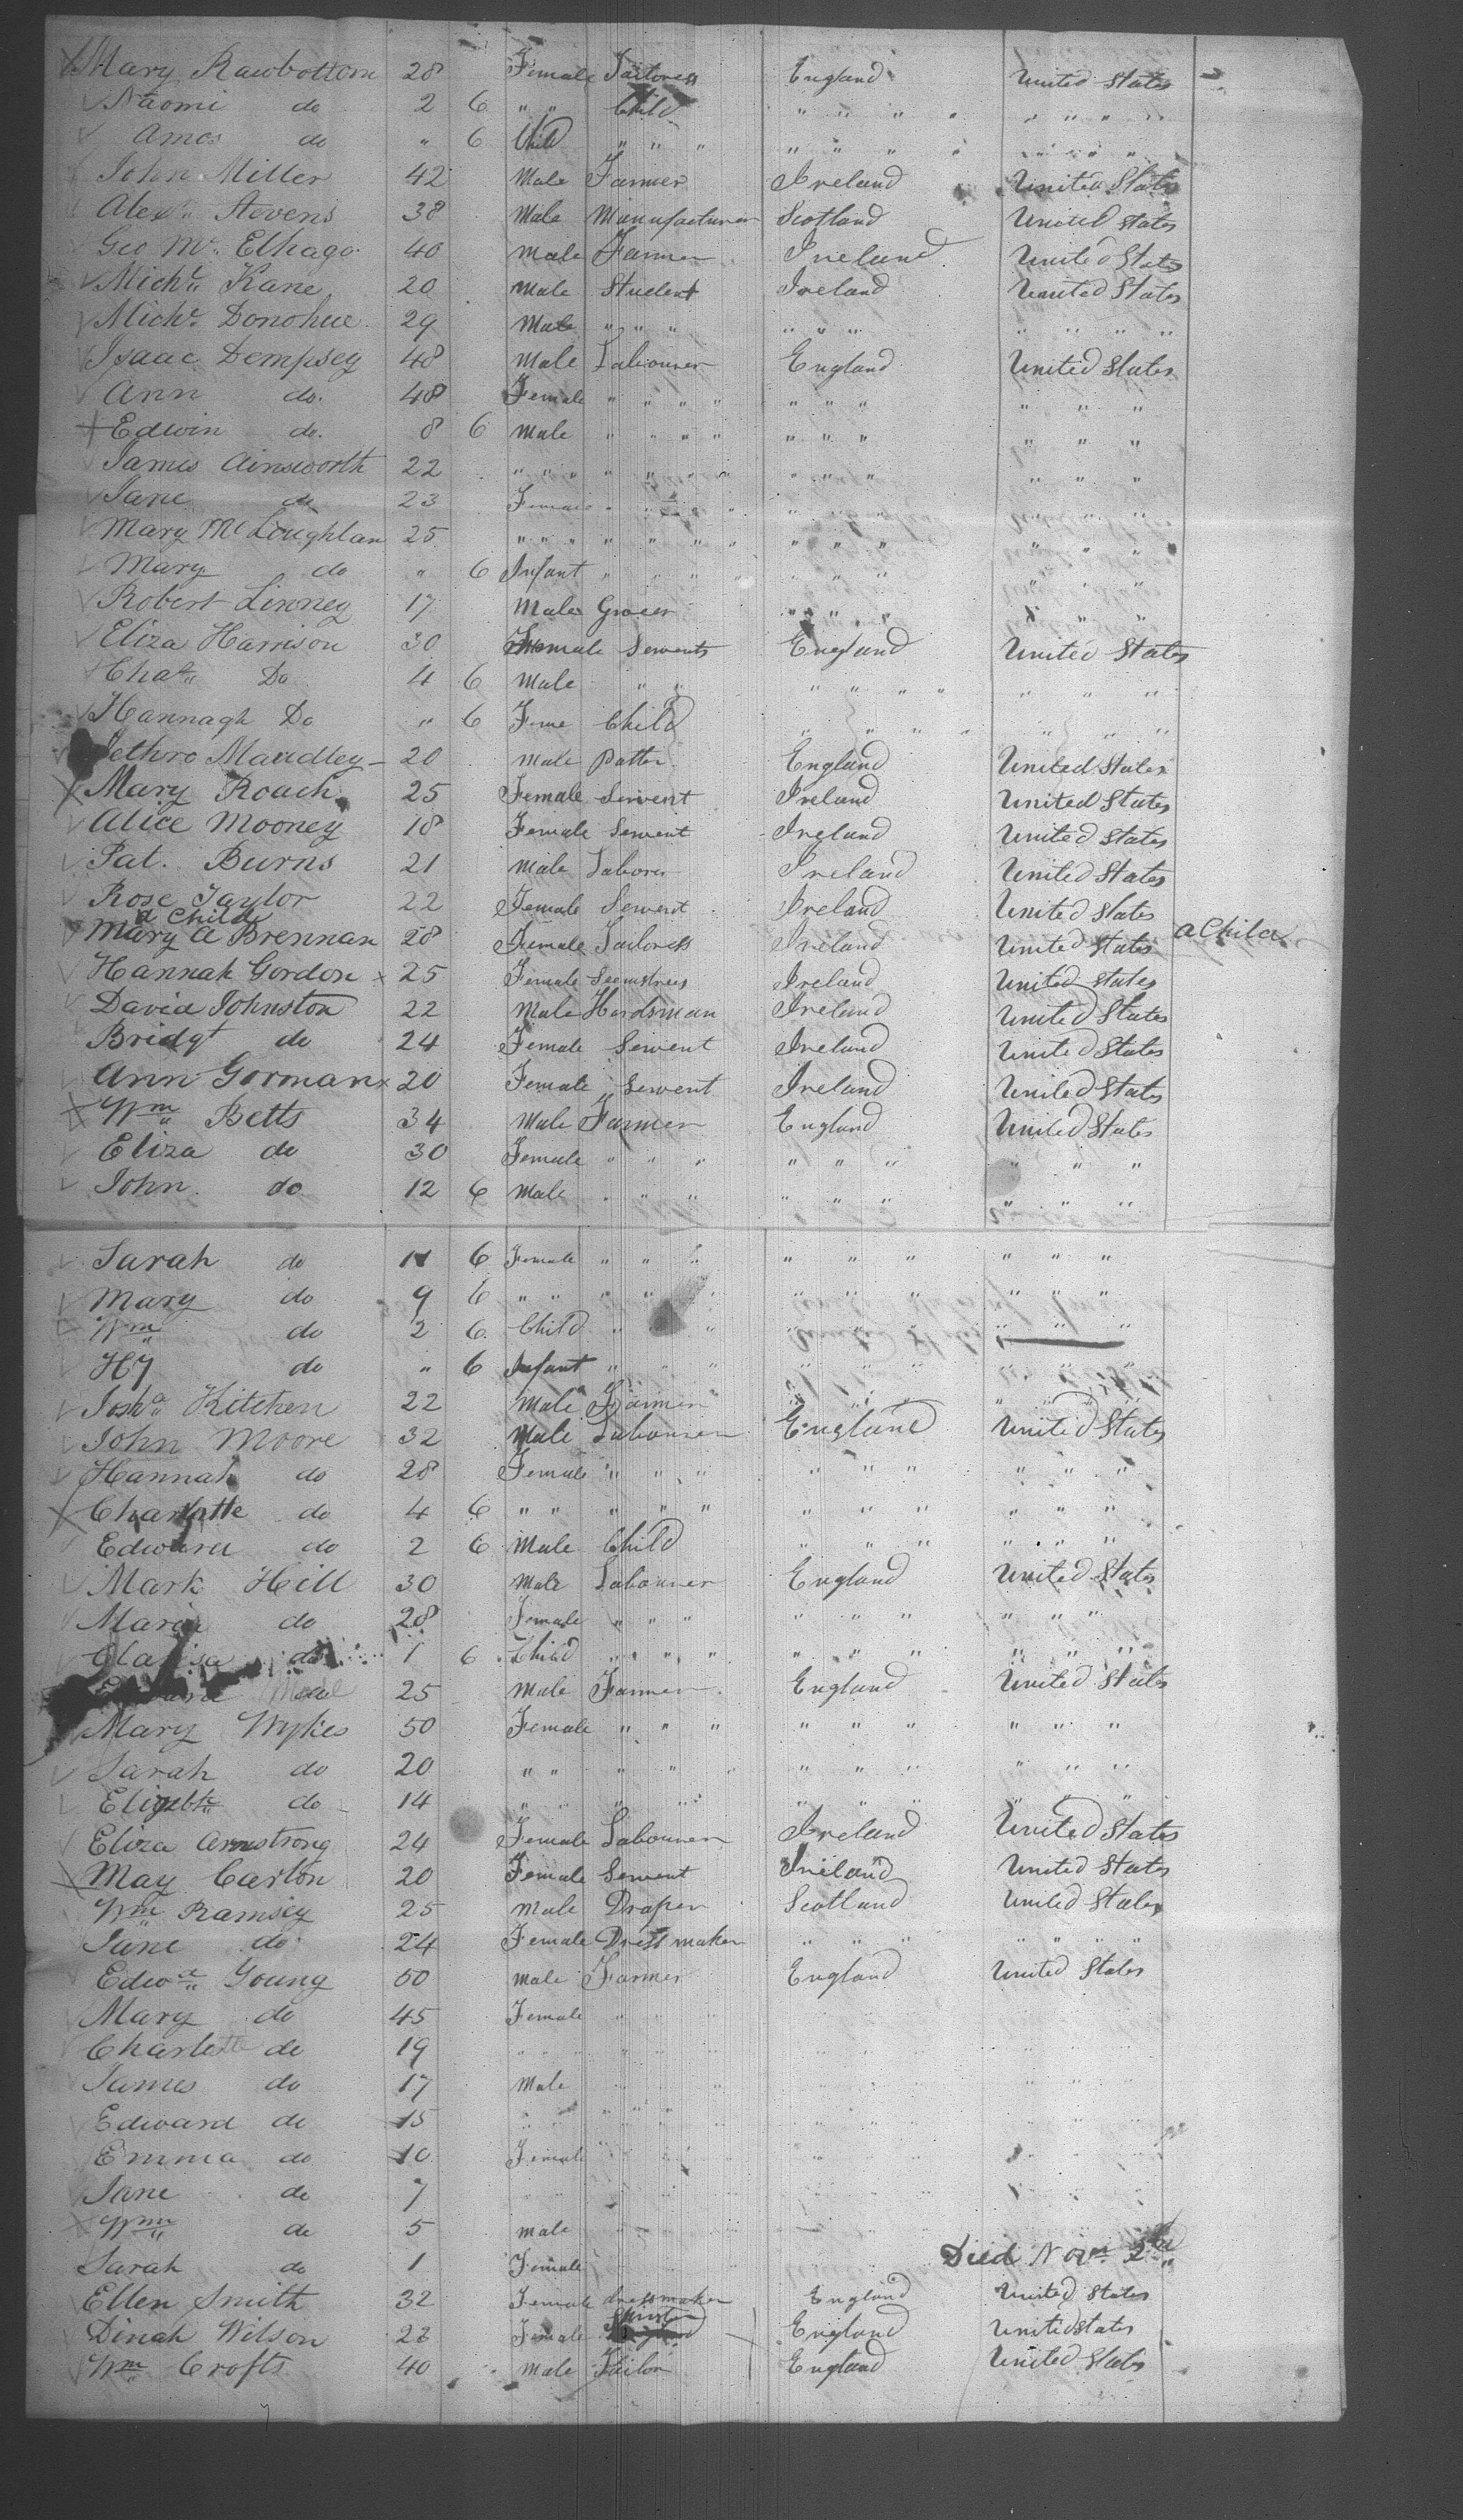 Mary Rawbottom 28 Female Tailoress England United States
Naomi do 2 6 " " Child " " " " " " " "
Amos do " 6 Child " " " " " " " " " " "
John Miller 42 Male Farmer Ireland United States
Alexr Stevens 38 Male Manufacturer Scotland United States
Geo Mc Elhago 40 Male Farmer Ireland United States
Michl Kane 20 Male Student Ireland United States
Michl Donohue 29 Male " " " " " " " " " "
Isaac Dempsey 48 Male Labourer England United States
Ann do. 48 Female " " " " " " " " " "
Edwin do. 8 6 Male " " " " " " " " " "
James Ainsworth 22 " " " " " " " " " " " " "
Jane do 23 Female " " " " " " " " " "
Mary McLoughlan 25 " " " " " " " " " " " " "
Mary do " 6 Infant " " " " " " " " " "
Robert Linney 17 Male Grocer " " " " " "
Eliza Harrison 30 Female Servents England United States
Chas Do 4 6 Male " " " " " " " " "
Hannagh Do " 6 Feme Child " " " " " " "
Jethro Maudley 20 Male Potter England United States
Mary Roach 25 Female Servent Ireland United States
Alice Mooney 18 Female Servent Ireland United States
Pat. Burns 21 Male Laborer Ireland United States
Rose Taylor 22 Female Servent Ireland United States
& Child
Mary A Brennan 28 Female Tailoress Ireland United States a Child
Hannah Gordon x 25 Female Seemstress Ireland United States
David Johnston 22 Male Herdsman Ireland United States
Bridgt do 24 Female Servent Ireland United States
Ann Gorman x 20 Female Servent Ireland United States
Wm Betts 34 Male Farmer England United States
Eliza do 30 Female " " " " " " " " "
John do 12 6 Male " " " " " " " " "
Sarah do 11 6 Female " " " " " " " " "
Mary do 9 6 " " " " " " " " " " "
Wm do 2 6 Child " " " " " " " "
Hy do " 6 Infant " " " " " " " " "
Josha Kitchen 22 Male Farmer " " " " " "
John Moore 32 Male Labourer England United States
Hannah do 28 Female " " " " " " " " "
Charlotte do 4 6 " " " " " " " " " " "
Edward do 2 6 Male Child " " " " " "
Mark Hill 30 Male Labourer England United States
Maria do 28 Female " " " " " " " " "
Clarisa do 1 6 Child " " " " " " " " " "
25 Male Farmer England United States
Mary Wykes 50 Female " " " " " " " " "
Sarah do 20 " " " " " " " " " " "
Elizabth do 14 " " " " " " " " " " "
Eliza Armstrong 24 Female Labourer Ireland United States
May Carlon 20 Female Servent Ireland United States
Wm Ramsey 25 Male Draper Scotland United States
Jane do 24 Female Dress maker " " " " " " "
Edwd Young 50 Male Farmer England United States
Mary do 45 Female
Charlotte do 19
James do 17 Male
Edward do 15
Emma do 10 Female
Jane do 7
Wm do 5 Male
Sarah do 1 Female Died Novr 2th
Ellen Smith 32 Female dressmaker England United States
Dinah Wilson 22 Female England United States
Wm Crofts 40 Male Tailor England United States